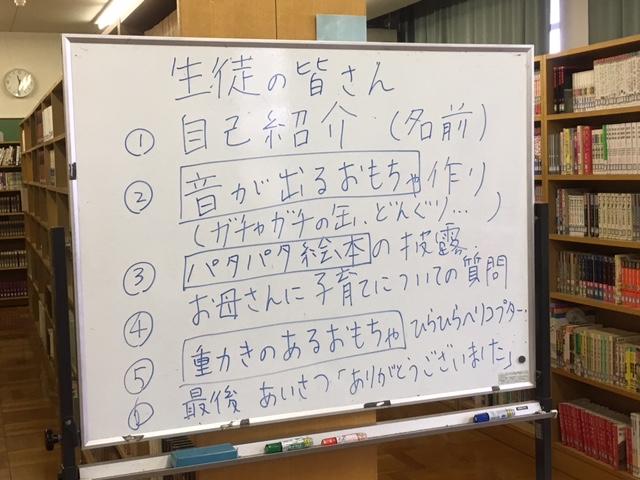 生徒の皆さん
① 自己紹介 (名前)
② 音が出るおもちゃ作り
(ガチャガチャの缶、どんぐり…)
③ パタパタ絵本の披露
④ お母さんに子育てについての質問
⑤ 重かきのあるおもちゃ ひらひらヘリコプター..
最後 あいさつ「ありがとうございました」